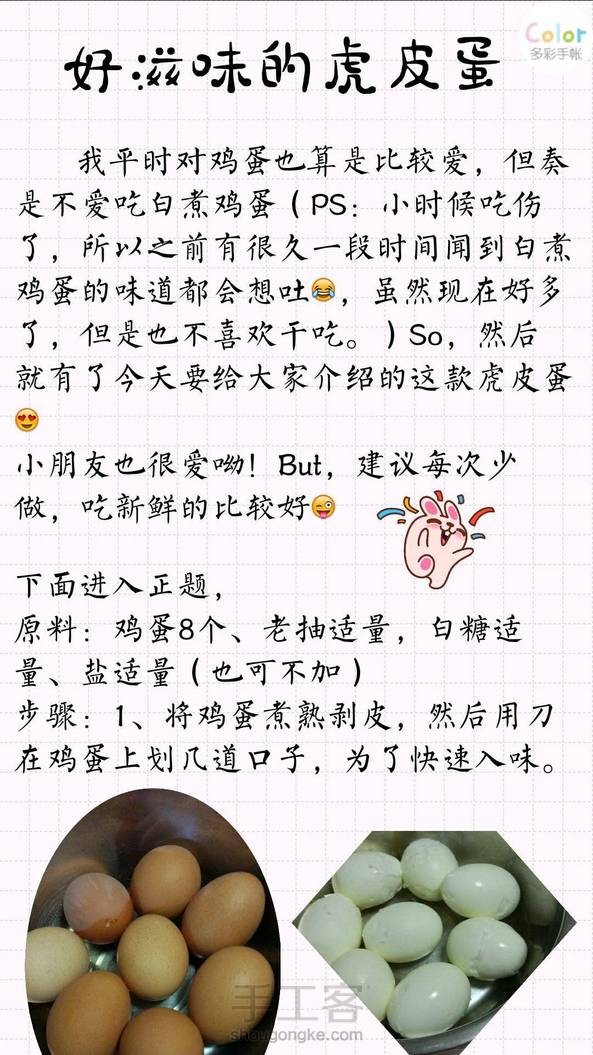 Color
多彩手帐
好滋味的虎皮蛋
我平时对鸡蛋也算是比较爱，但奏
是不爱吃白煮鸡蛋（PS：小时候吃伤
了，所以之前有很久一段时间闻到白煮
鸡蛋的味道都会想吐😂，虽然现在好多
了，但是也不喜欢干吃。）So，然后
就有了今天要给大家介绍的这款虎皮蛋
😍
小朋友也很爱呦！But，建议每次少
做，吃新鲜的比较好😜
下面进入正题，
原料：鸡蛋8个、老抽适量，白糖适
量、盐适量（也可不加）
步骤：1、将鸡蛋煮熟剥皮，然后用刀
在鸡蛋上划几道口子，为了快速入味。
手工客
shougongke.com